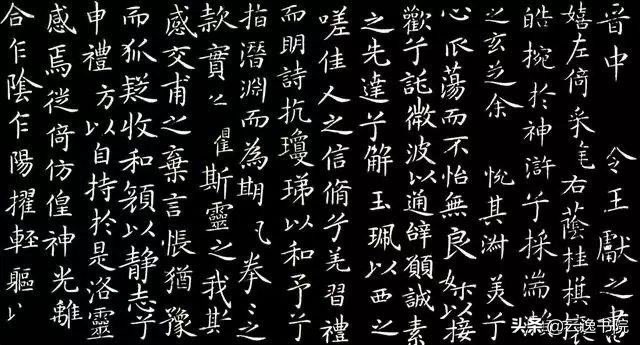 晉中 令王獻之書
嬉左倚采旄右蔭桂棋攘
皓捥於神滸兮採湍瀨
之玄芝余 悅其淑美兮
心蕩而不怡無良媒以接
歡兮託微波以通辝願誠素
之先達兮解玉珮以西之
嗟佳人之信脩兮羌習禮
而明詩抗瓊珶以和予兮
指潛淵而為期 拳々之
款實 瞿斯靈之我其
感交甫之棄言悵猶豫
而狐疑收和顏以静志兮
申禮 方以自持於是洛靈
感焉徙倚仿偟神光離
合乍陰乍陽擢輕軀以
头条@云逸书院